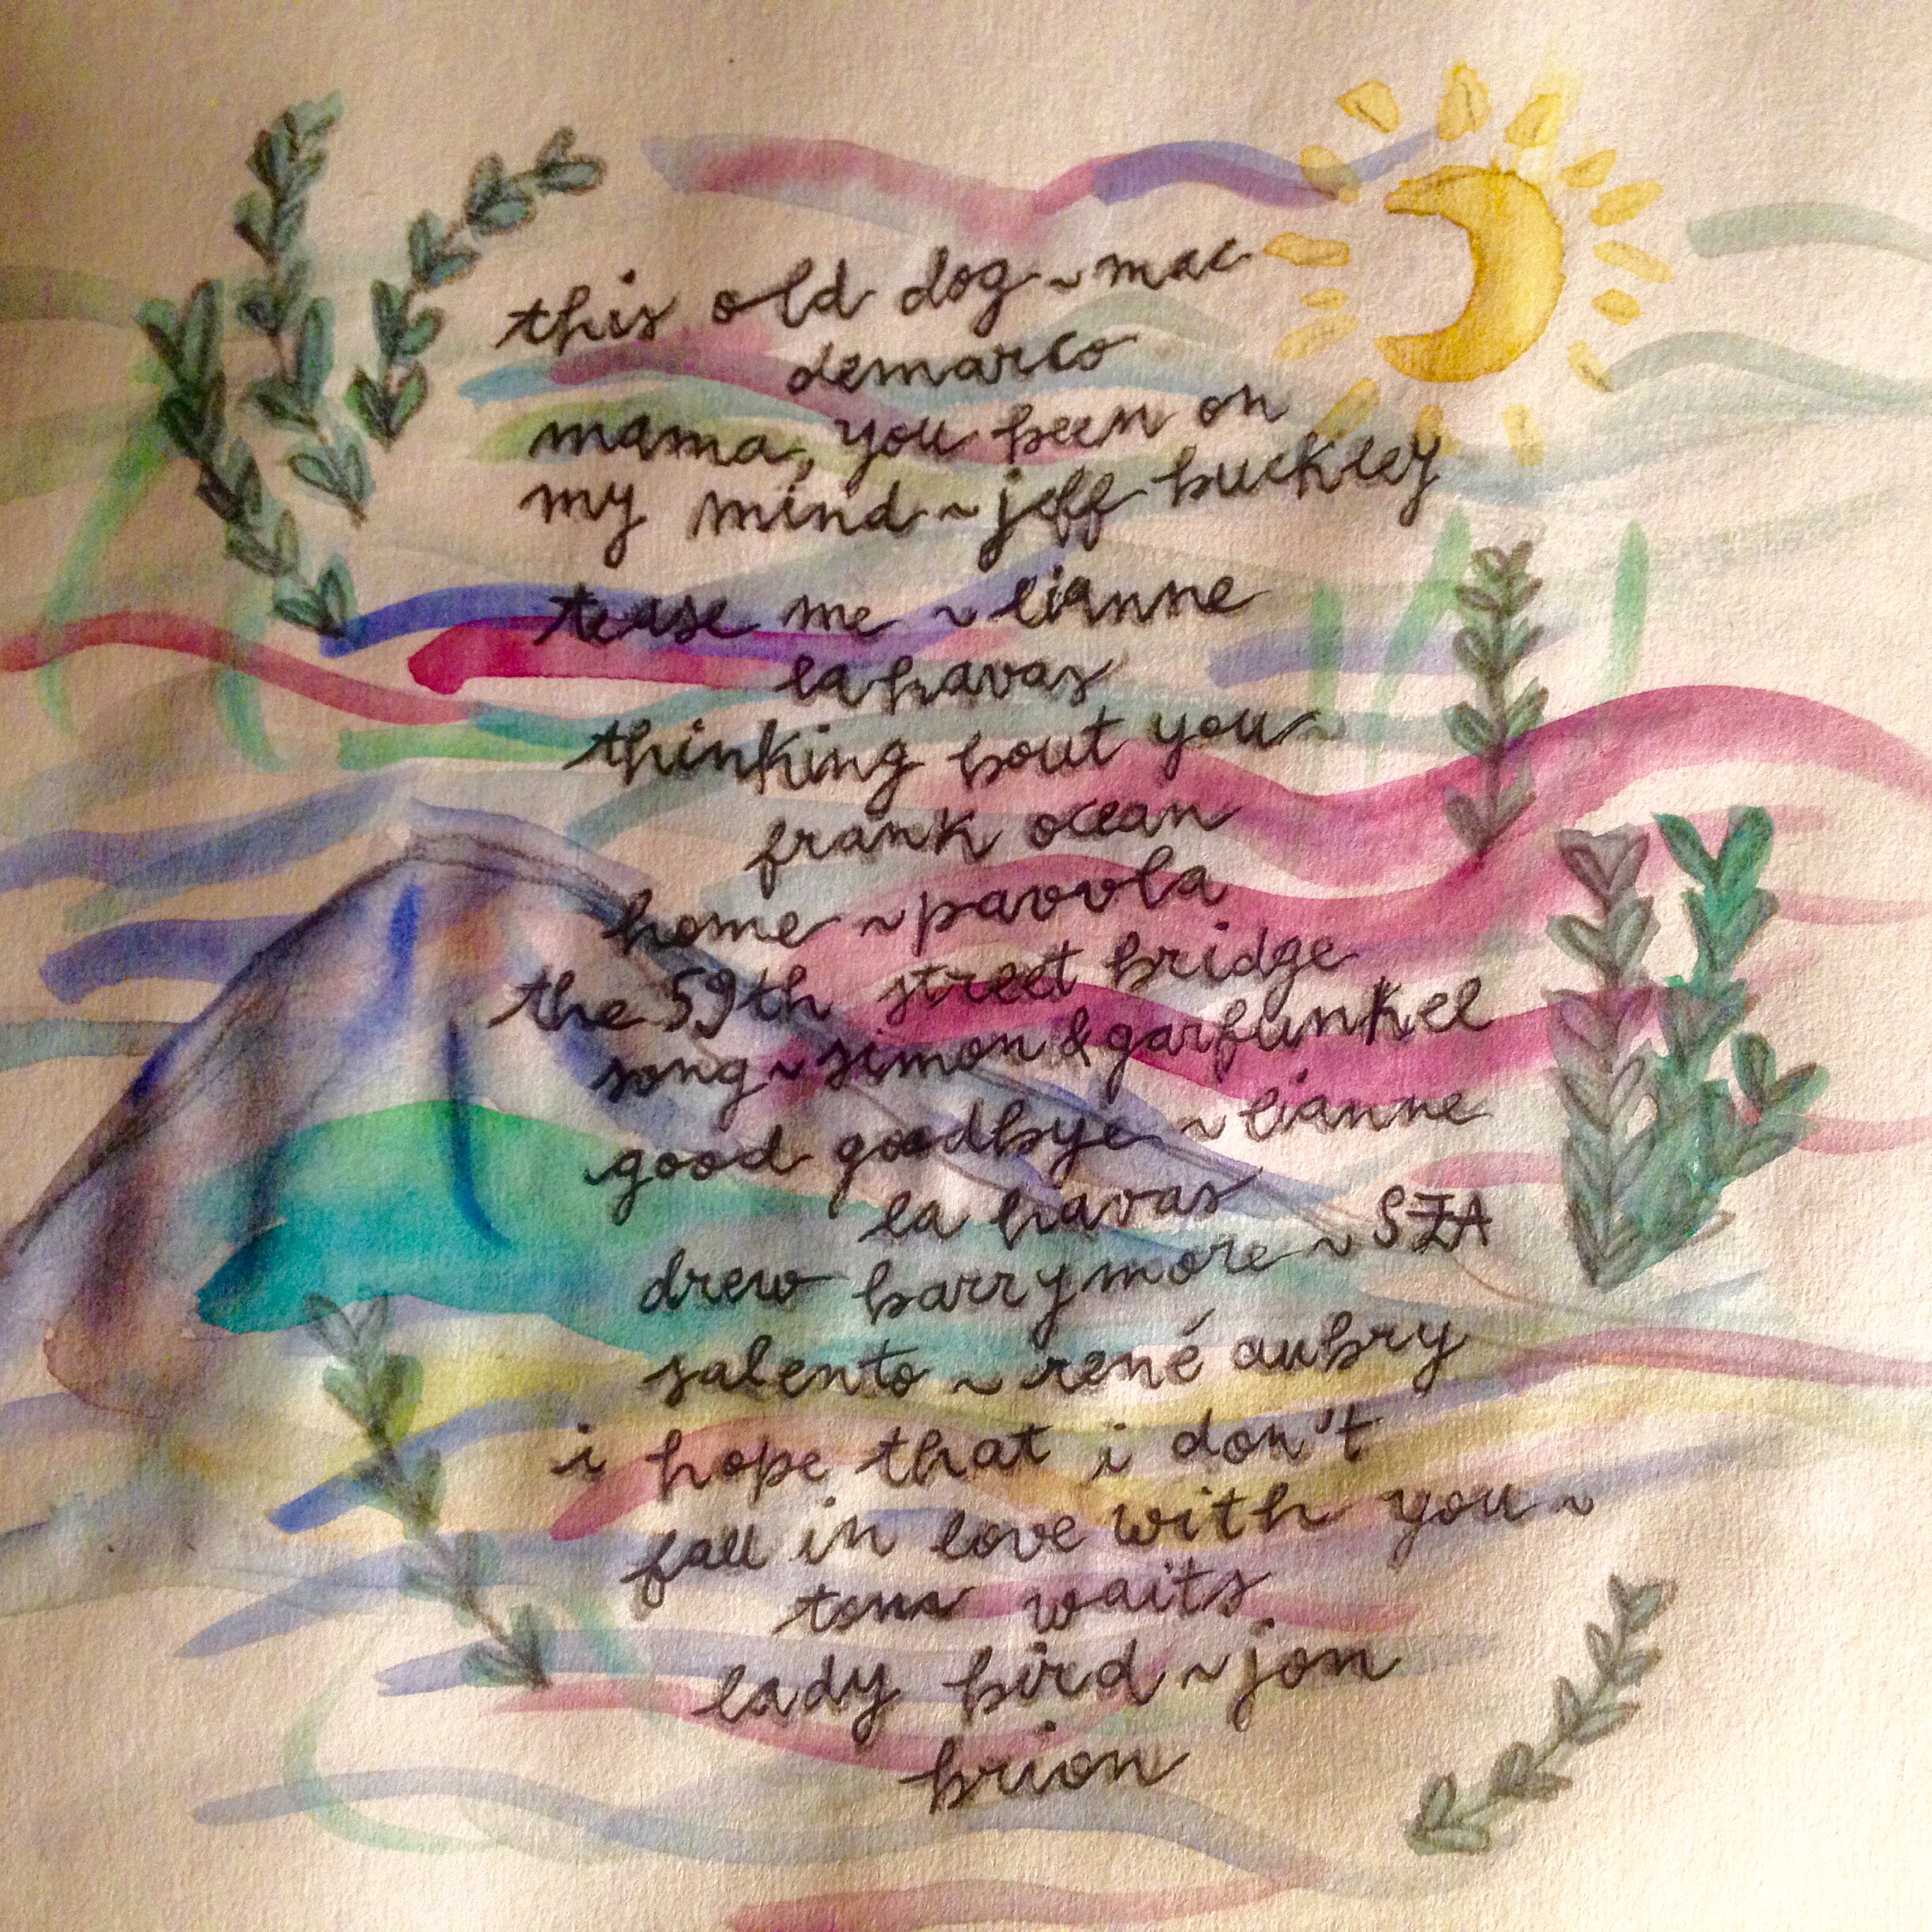 this old dog ~ mac
demarco
mama, you been on
my mind ~ jeff buckley
tease me ~ lianne
la havas
thinking bout you ~
frank ocean
home ~ pavvla
the 59th street bridge
song ~ simon & garfunkel
good goodbye ~ lianne
la havas
drew barrymore ~ SZA
salento ~ rené aubry
i hope that i don't
fall in love with you ~
tom waits
lady bird ~ jon
brion